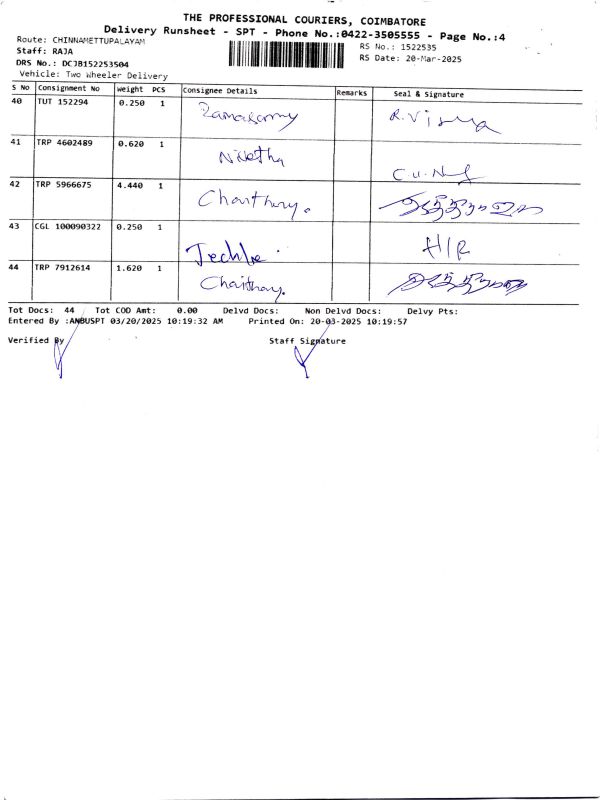 THE PROFESSIONAL COURIERS, COIMBATORE
Delivery Runsheet - SPT - Phone No.:0422-3505555 - Page No.:4
Route: CHINNAMETTUPALAYAM
RS No.: 1522535
Staff: RAJA
RS Date: 20-Mar-2025
DRS No.: DCJB152253504
Vehicle: Two Wheeler Delivery
S No Consignment No Weight PCS Consignee Details Remarks Seal & Signature
40 TUT 152294 0.250 1 Ramasamy R. Visma
41 TRP 4602489 0.620 1 Nivetha
42 TRP 5966675 4.440 1
43 CGL 100090322 0.250 1 H/R
44 TRP 7912614 1.620 1
Tot Docs: 44 Tot COD Amt: 0.00 Delvd Docs: Non Delvd Docs: Delvy Pts:
Entered By :ANBUSPT 03/20/2025 10:19:32 AM Printed On: 20-03-2025 10:19:57
Verified By Staff Signature